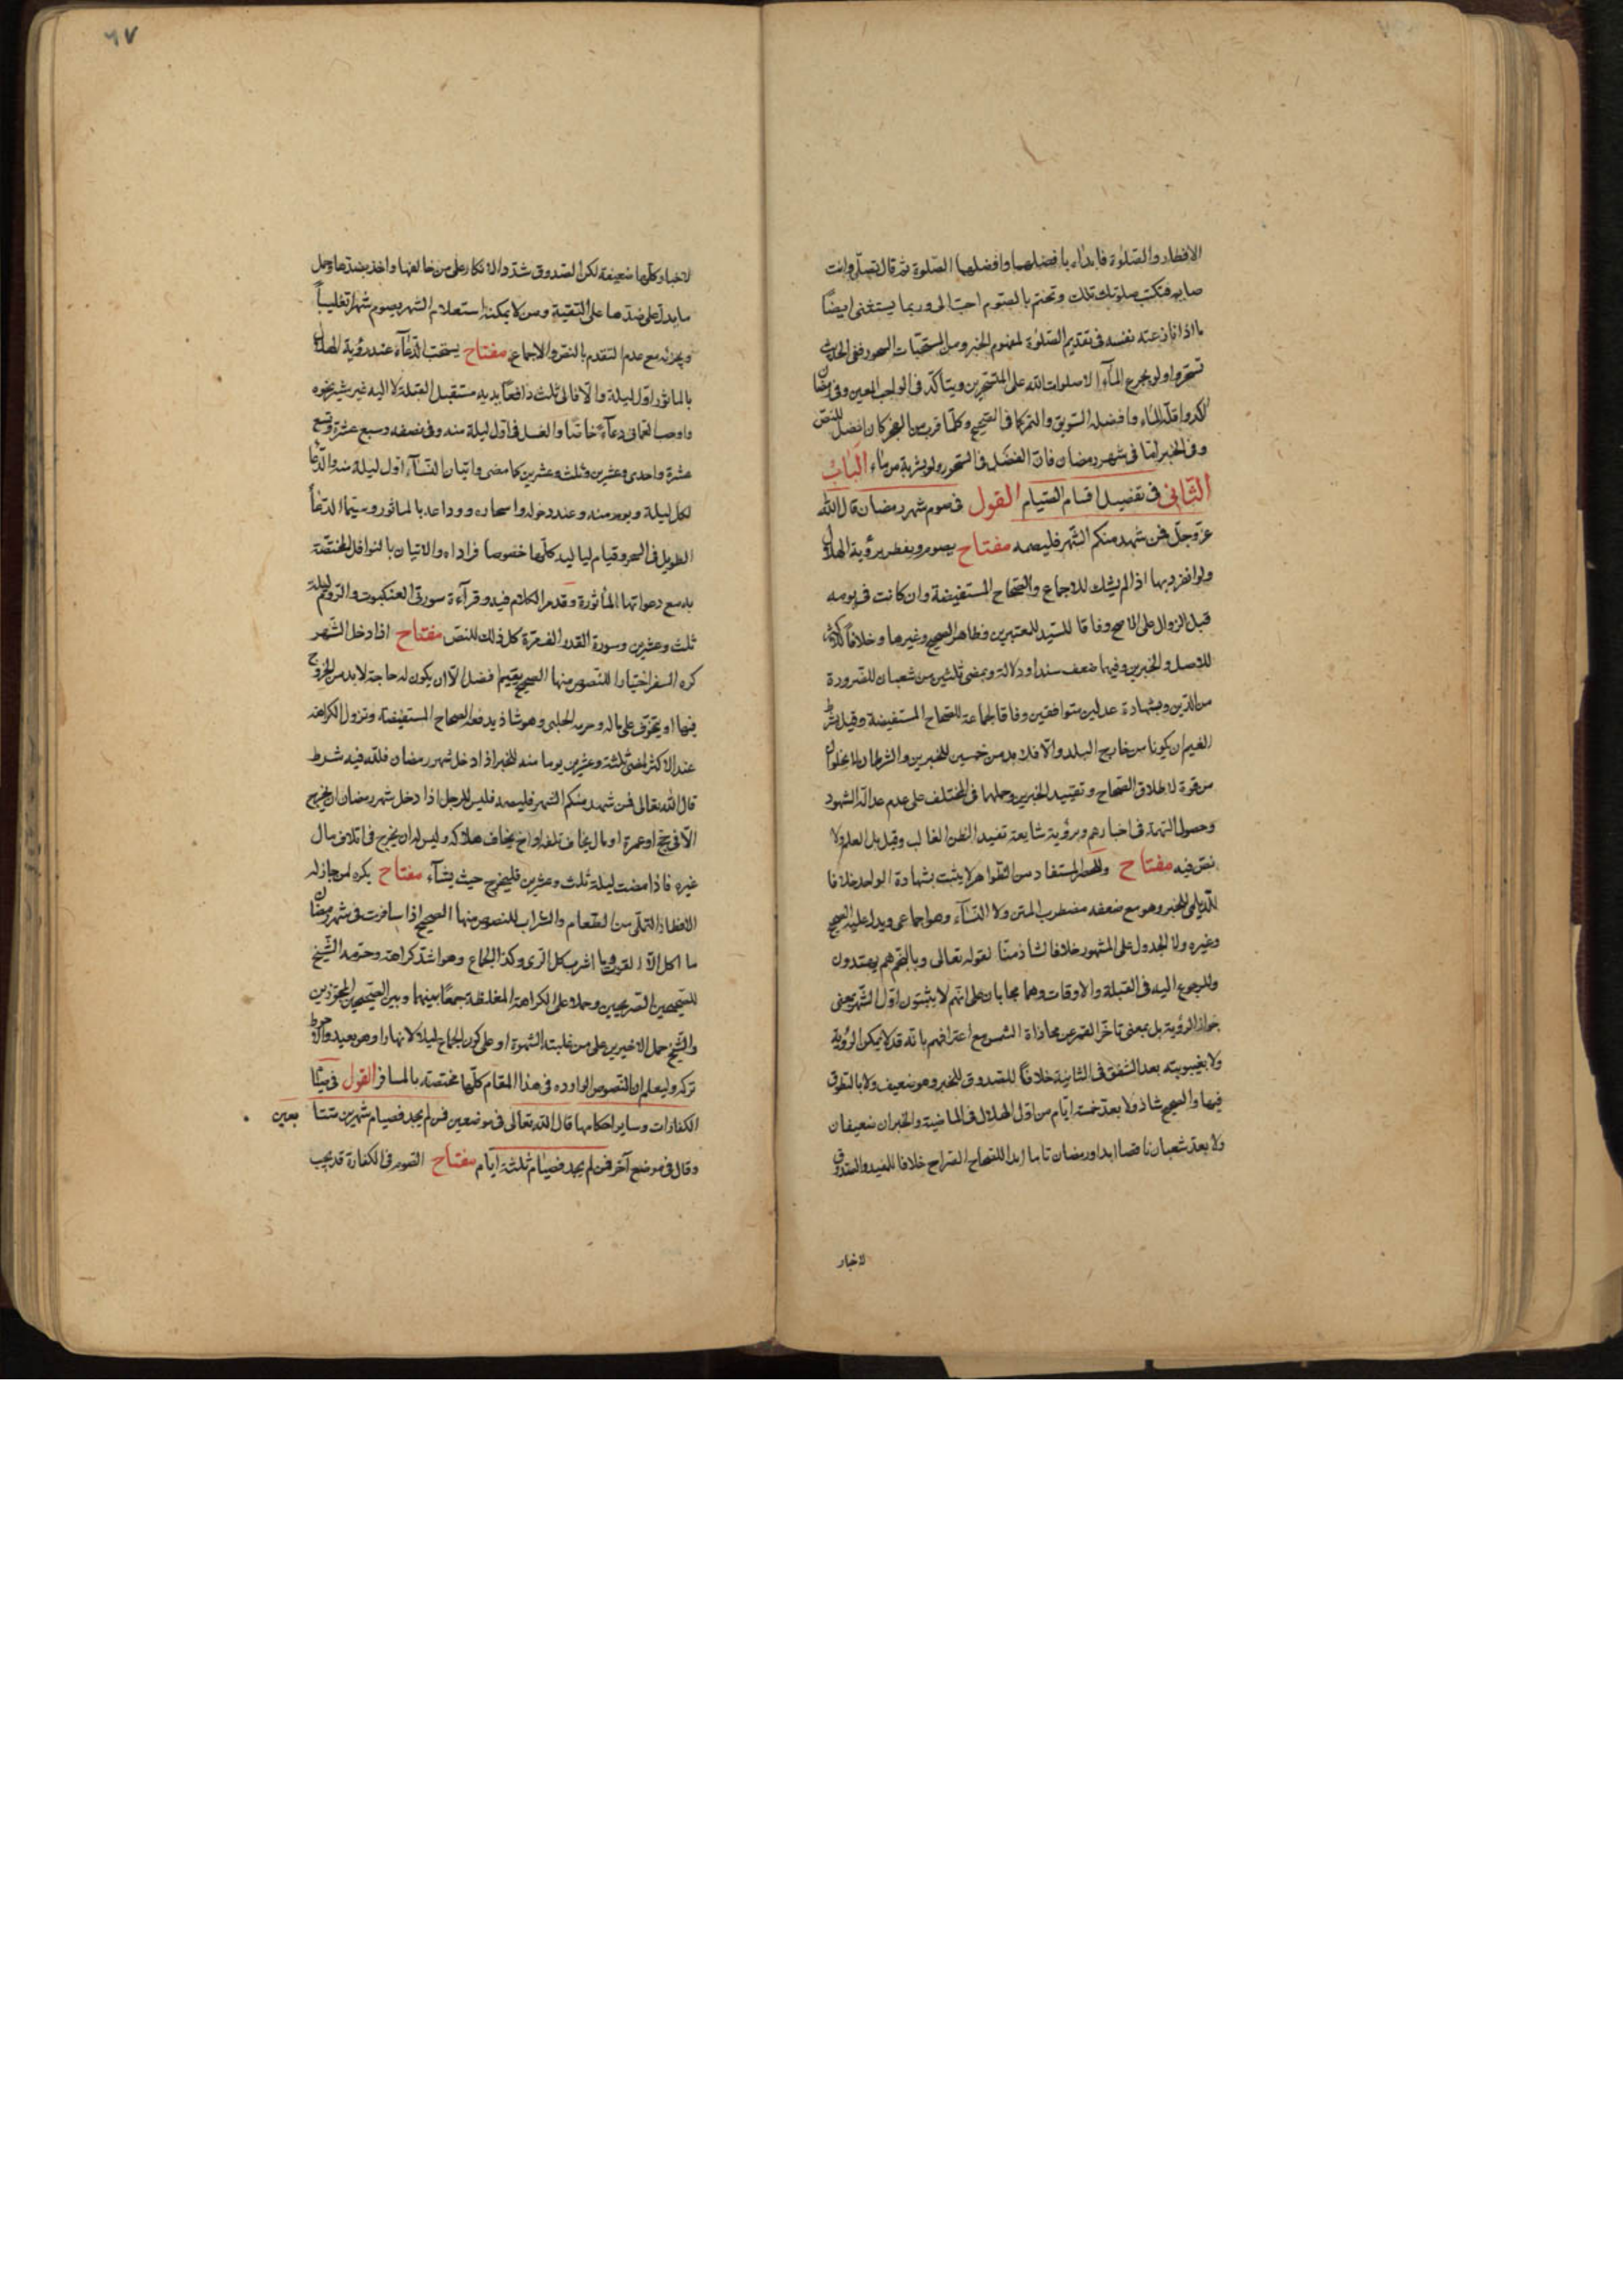 الافطار والصلوة فابداء بافضلهما وافضلهما الصلوة ثم قال تصلى وانت
صايم فتكتب صلوتك تلك وتختم بالصوم احب الى وربما يستثنى ايضاً
ما اذا نازعته نفسه فى تقديم الصلوة لمفهوم الخبر ومن المستحبات السحور ففى الحديث
تسحروا ولو بجرع المآء الا صلوات الله على المتسحرين ويتاكد فى الواجب المعين وفى رمضان
آكد واقله الماء وافضله السويق والتمر كما فى الصحيح وكلما قرب من الفجر كان افضل للنص
وفى الخبر امّا فى شهر رمضان فان الفضل فى السحور ولو بشربة من ماء الباب
الثانى فى تفصيل اقسام الصيام القول فى صوم شهر رمضان قال الله
عزّ وجلّ فمن شهد منكم الشهر فليصمه مفتاح يصوم ويفطر برؤية الهلال
ولو انفرد بها اذا لم يشك للاجماع والصحاح المستفيضة وان كانت فى يومه
قبل الزوال على الاصح وفاقا للسيد للمعتبرين وظاهر الصحيح وغيرها وخلافاً للاكثر
للاصل والخبرين وفيها ضعف سندا ودلالة وبمضى ثلثين من شعبان للضرورة
من الدين وبشهادة عدلين متوافقين وفاقا لجماعة للصحاح المستفيضة وقيل بشرط
الغيم ان يكونا من خارج البلد والا فلا بد من خمسين للخبرين والشرطان لا يخلوان
من قوة لاطلاق الصحاح وتقييد الخبرين وحملها فى المختلف على عدم عدالة الشهود
وحصول التهمة فى اخبارهم وبرؤية شايعة تفيد الظن الغالب وقيل بل العلم ولا
نص فيه مفتاح وللحصر المستفاد من الظواهر لا يثبت بشهادة الواحد خلافا
للديلمى للخبر وهو مع ضعفه مضطرب المتن ولا النسآء وهو اجماعى ويدل عليه الصحيح
وغيره ولا الجدول على المشهور خلافا لشاذ منّا لقوله تعالى وبالنجم هم يهتدون
وللرجوع اليه فى القبلة والاوقات وهما مجابان على انهم لا يثبتون اوّل الشهر بمعنى
جواز الرؤية بل بمعنى تاخر القمر عن محاذاة الشمس مع اعترافهم بانه قد لا يمكن الرؤية
ولا بغيبوبته بعد الشفق فى الثانية خلافاً للصدوق للخبر وهو ضعيف ولا بالتطوق
فيها والصحيح شاذ ولا بعدّ خمسة ايّام من اوّل الهلال فى الماضية والخبران ضعيفان
ولا بعدّ شعبان ناقصا ابدا ورمضان تاما ابدا للصحاح الصراح خلافا للمفيد والصدوق
لاخبار
٦٧
لاخبار وكلها ضعيفة لكن الصدوق شدّد الانكار على من خالفها واخذ بضدها وحمل
ما يدل على ضدها على التقية ومن لا يمكنه استعلام الشهر يصوم شهرا تغليباً
ويجزئه مع عدم التقدم بالنص والاجماع مفتاح يستحب الدّعآء عند رؤية الهلال
بالماثور اوّل ليلة والّا فالى ثلث رافعاً يديه مستقبل القبلة لا اليه غير مشير نحوه
واوجب العمانى دعآء خاصّا والغسل فى اوّل ليلة منه وفى نصفه وسبع عشرة وتسع
عشرة واحدى وعشرين وثلث وعشرين كما مضى واتيان النسآء اوّل ليلة منه والدّعا
لكل ليلة ويوم منه وعند دخوله واسحاره ووداعه بالماثور وسيّما الدعآ
الطويل فى السحر وقيام لياليه كلها خصوصا فراداه والاتيان بالنوافل المختصّة
به مع دعواتها الماثورة وقدم الكلام فيه وقرآءة سورتى العنكبوت والروم ليلة
ثلث وعشرين وسورة القدر الف مرّة كل ذلك للنص مفتاح اذا دخل الشهر
كره السفر اختيارا للنصوص منها الصحيح يقيم افضل الّا ان يكون له حاجة لا بد من الخروج
فيها او يتخوف على ماله وحرمه الحلبى وهو شاذ يدفعه الصحاح المستفيضة وتزول الكراهة
عند الاكثر لمضى ثلثة وعشرين يوما منه للخبر اذا دخل شهر رمضان فلله فيه شرط
قال الله تعالى فمن شهد منكم الشهر فليصمه فليس للرجل اذا دخل شهر رمضان ان يخرج
الّا فى حج او عمرة او مال يخاف تلفه او اخ يخاف هلاكه وليس له ان يخرج فى اتلاف مال
غيره فاذا مضت ليلة ثلث وعشرين فليخرج حيث يشآء مفتاح يكره لمن جاز له
الافطار التملّى من الطعام والشراب للنصوص منها الصحيح اذا سافرت فى شهر رمضان
ما اكل الّا القوت وما اشرب كل الرى وكذا الجماع وهو اشد كراهة وحرّمه الشيخ
للصحيحين الصريحين وحملا على الكراهة المغلظة جمعاً بينهما وبين الصحيحين المجوزين
والشيخ حمل الاخيرين على من غلبته الشهوة او على كون الجماع ليلا لا نهارا وهو بعيد والاحوط
تركه وليعلم ان النصوص الواردة فى هذا المقام كلّها مختصة بالمسافر القول فى صيام
الكفارات وساير احكامها قال الله تعالى فى موضعين فمن لم يجد فصيام شهرين متتا بعين
وقال فى موضع آخر فمن لم يجد فصيام ثلثة ايّام مفتاح الصوم فى الكفارة قد يجب